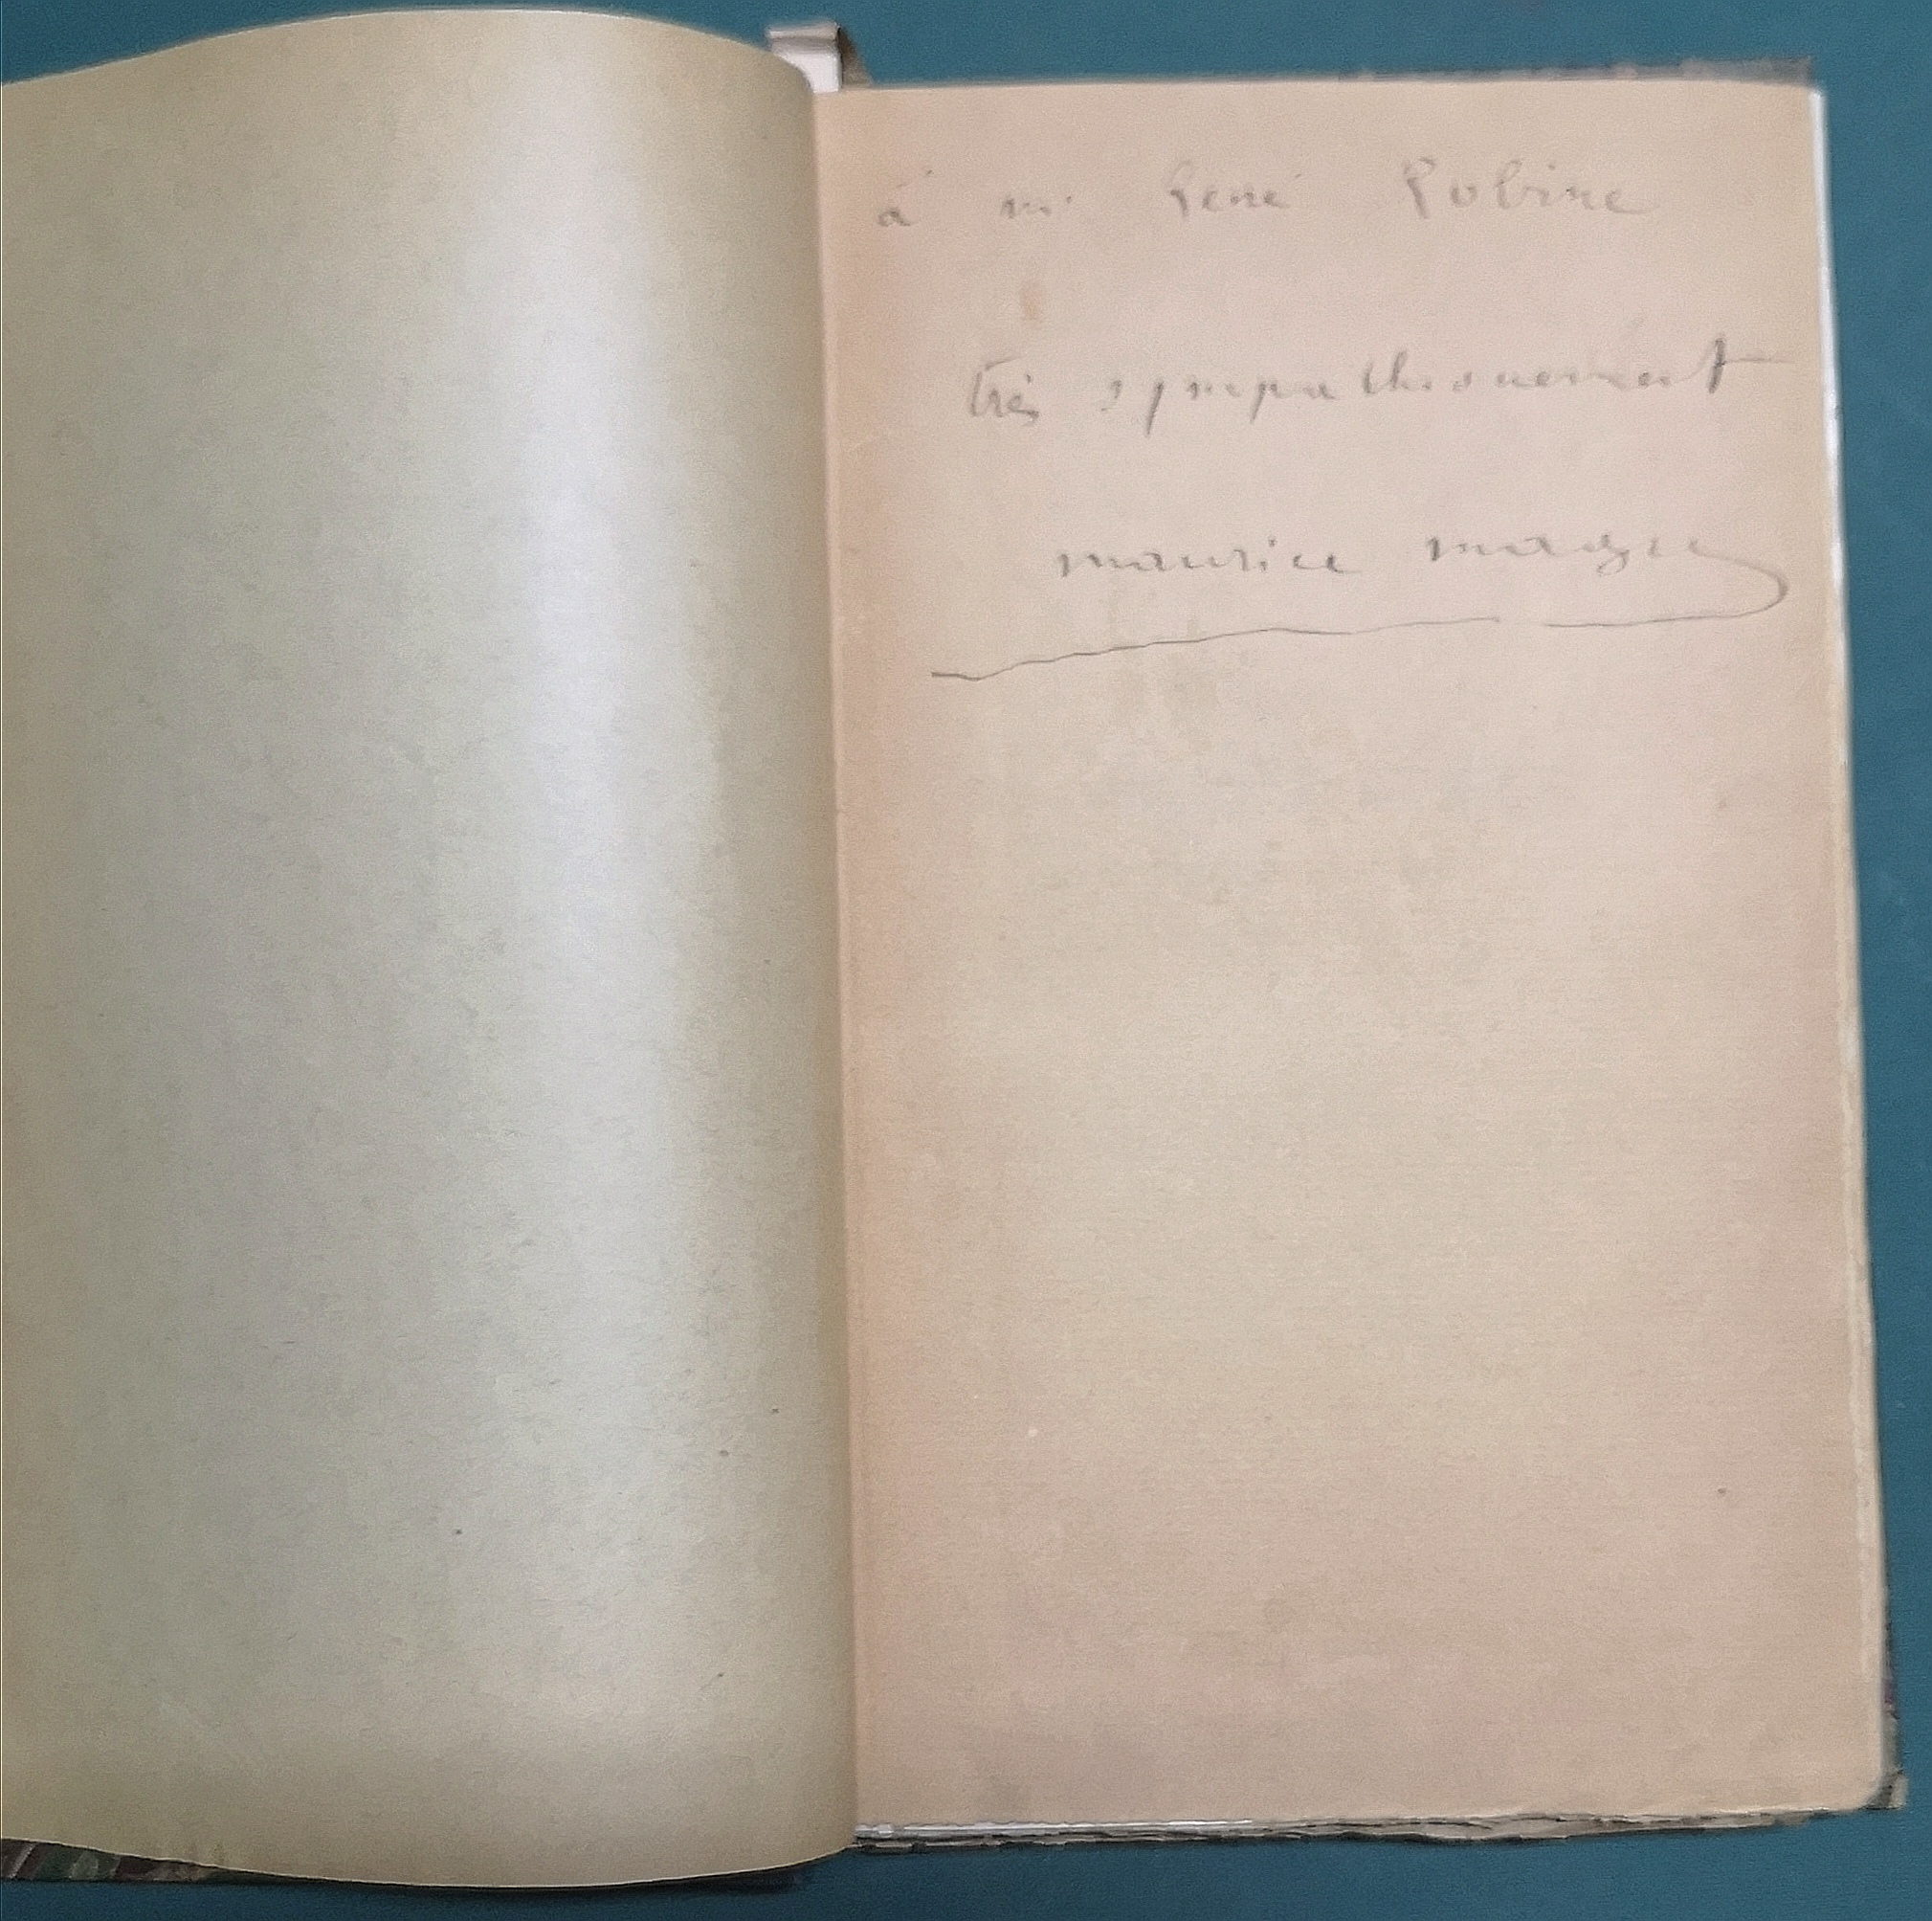 à m. René Robine
très sympathiquement
maurice magre